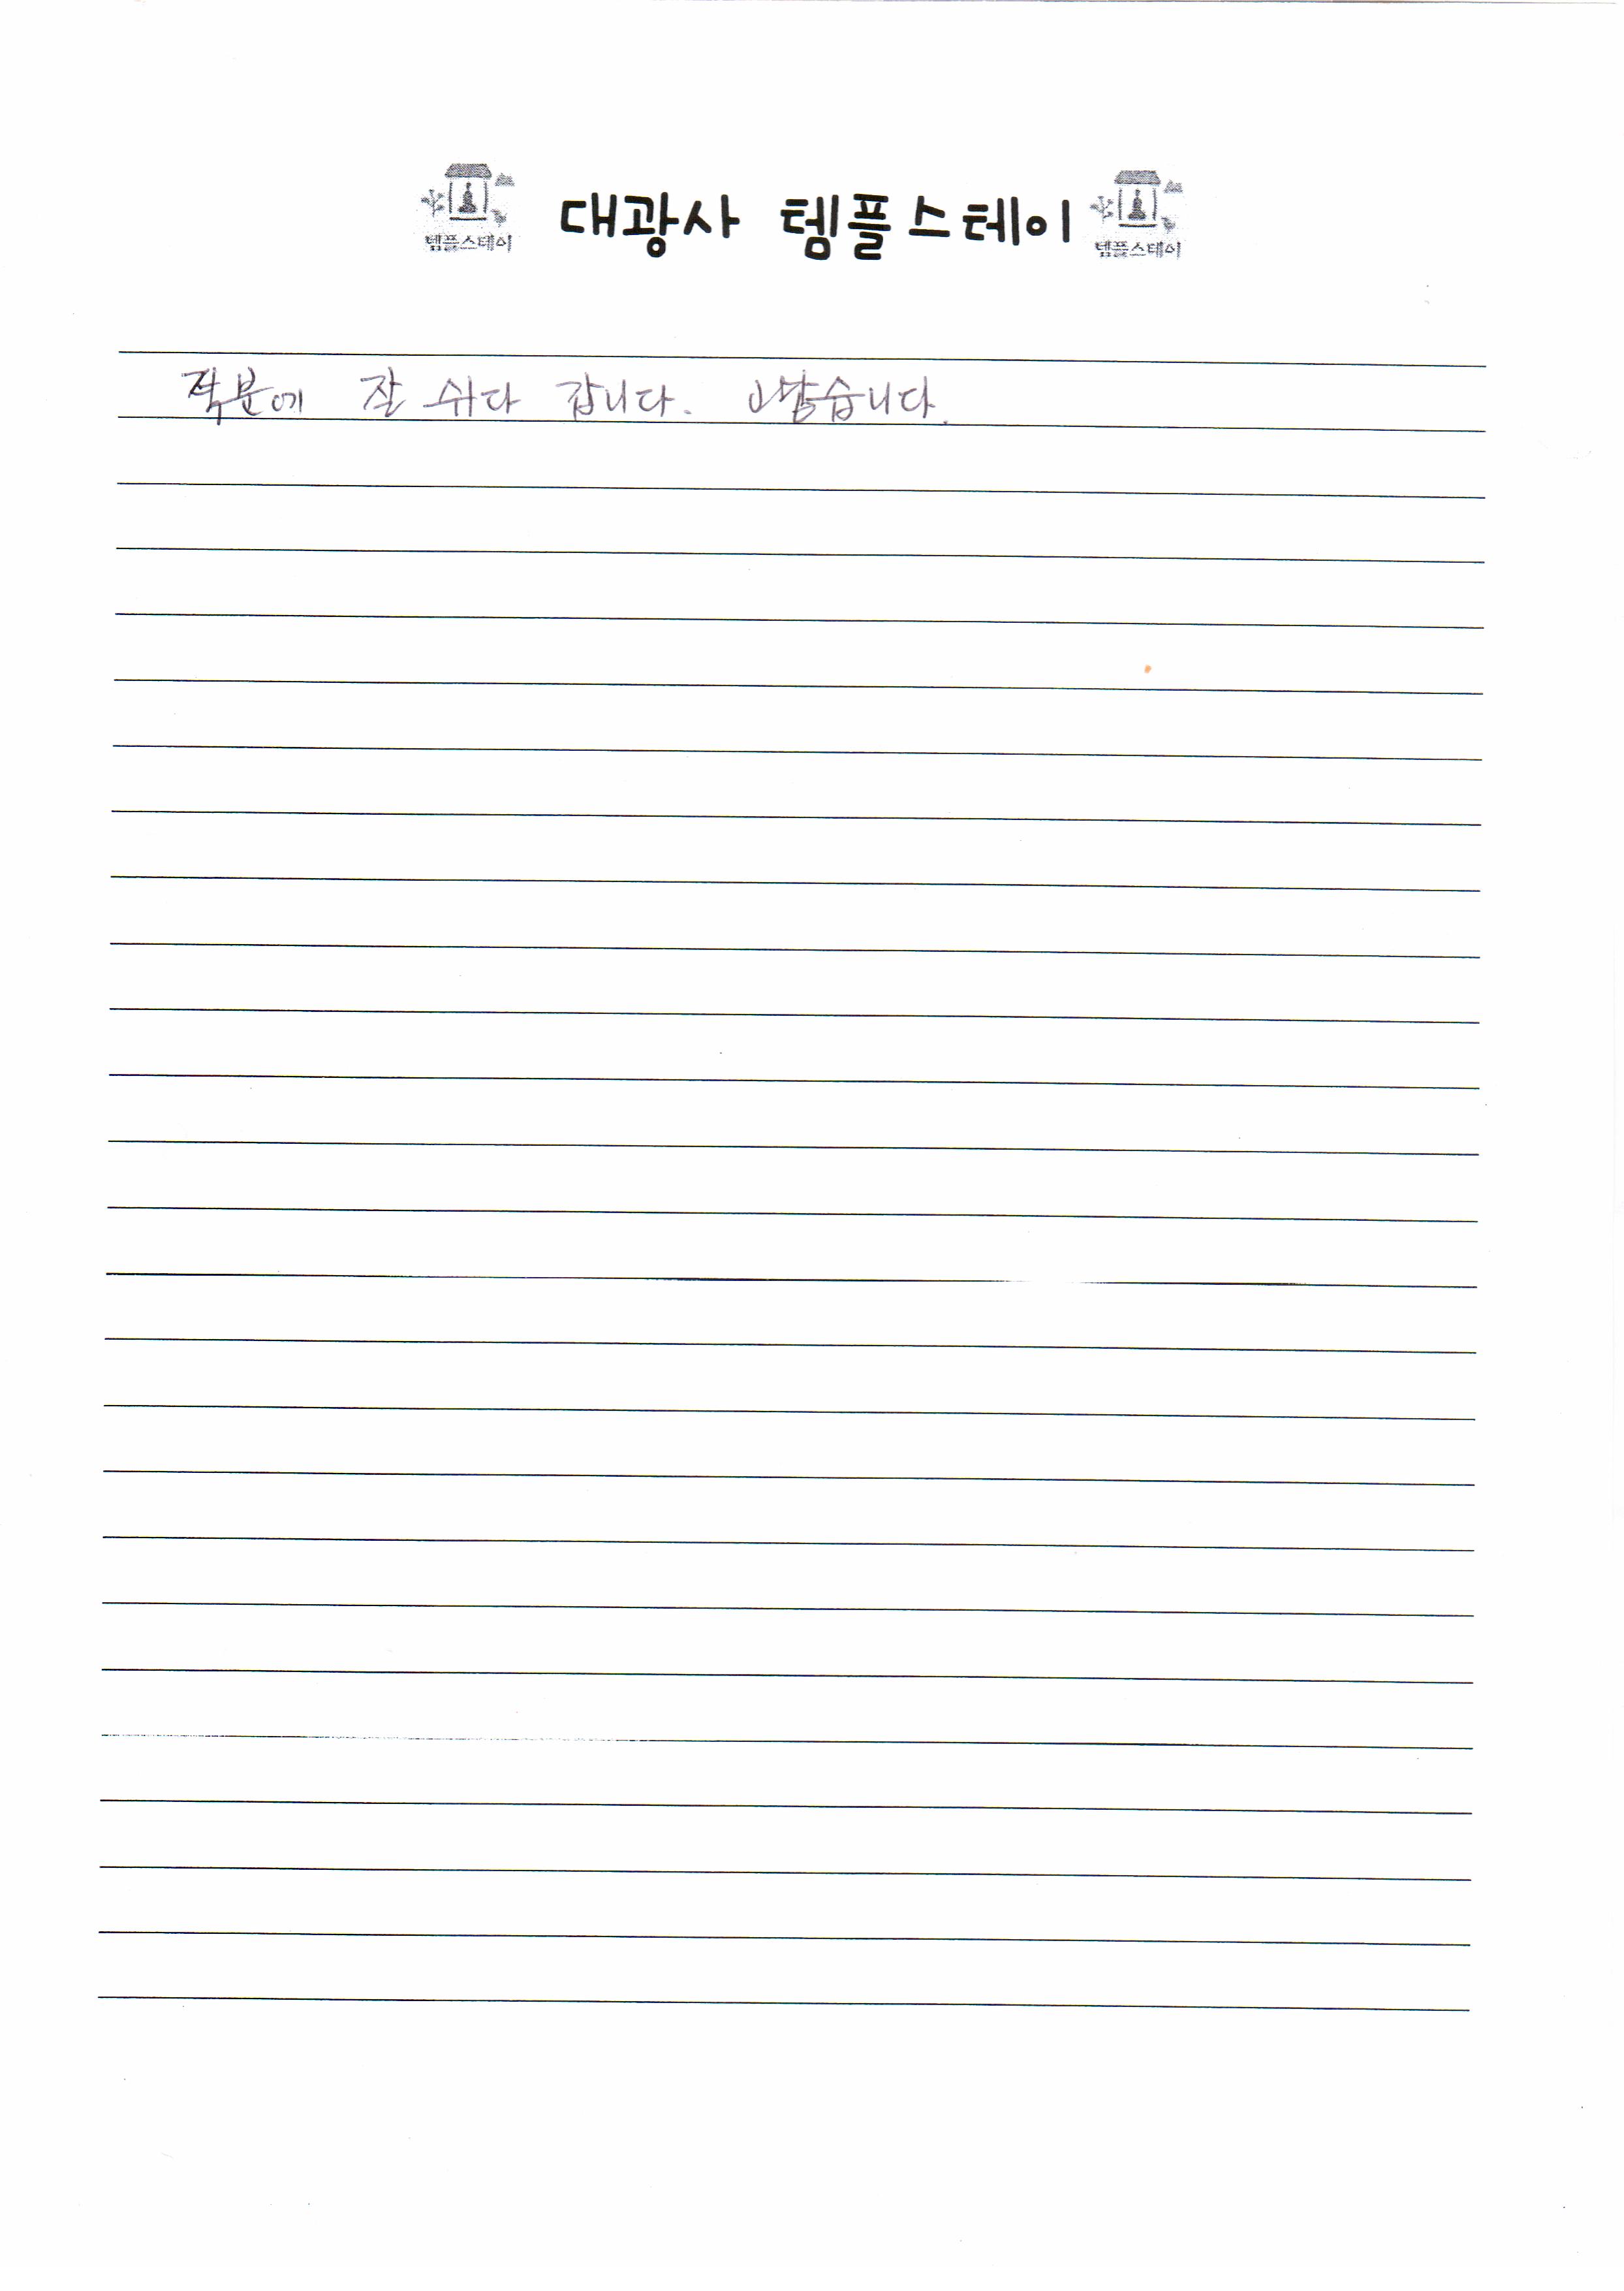 템플스테이 대광사 템플스테이 템플스테이
덕분에 잘 쉬다 갑니다.